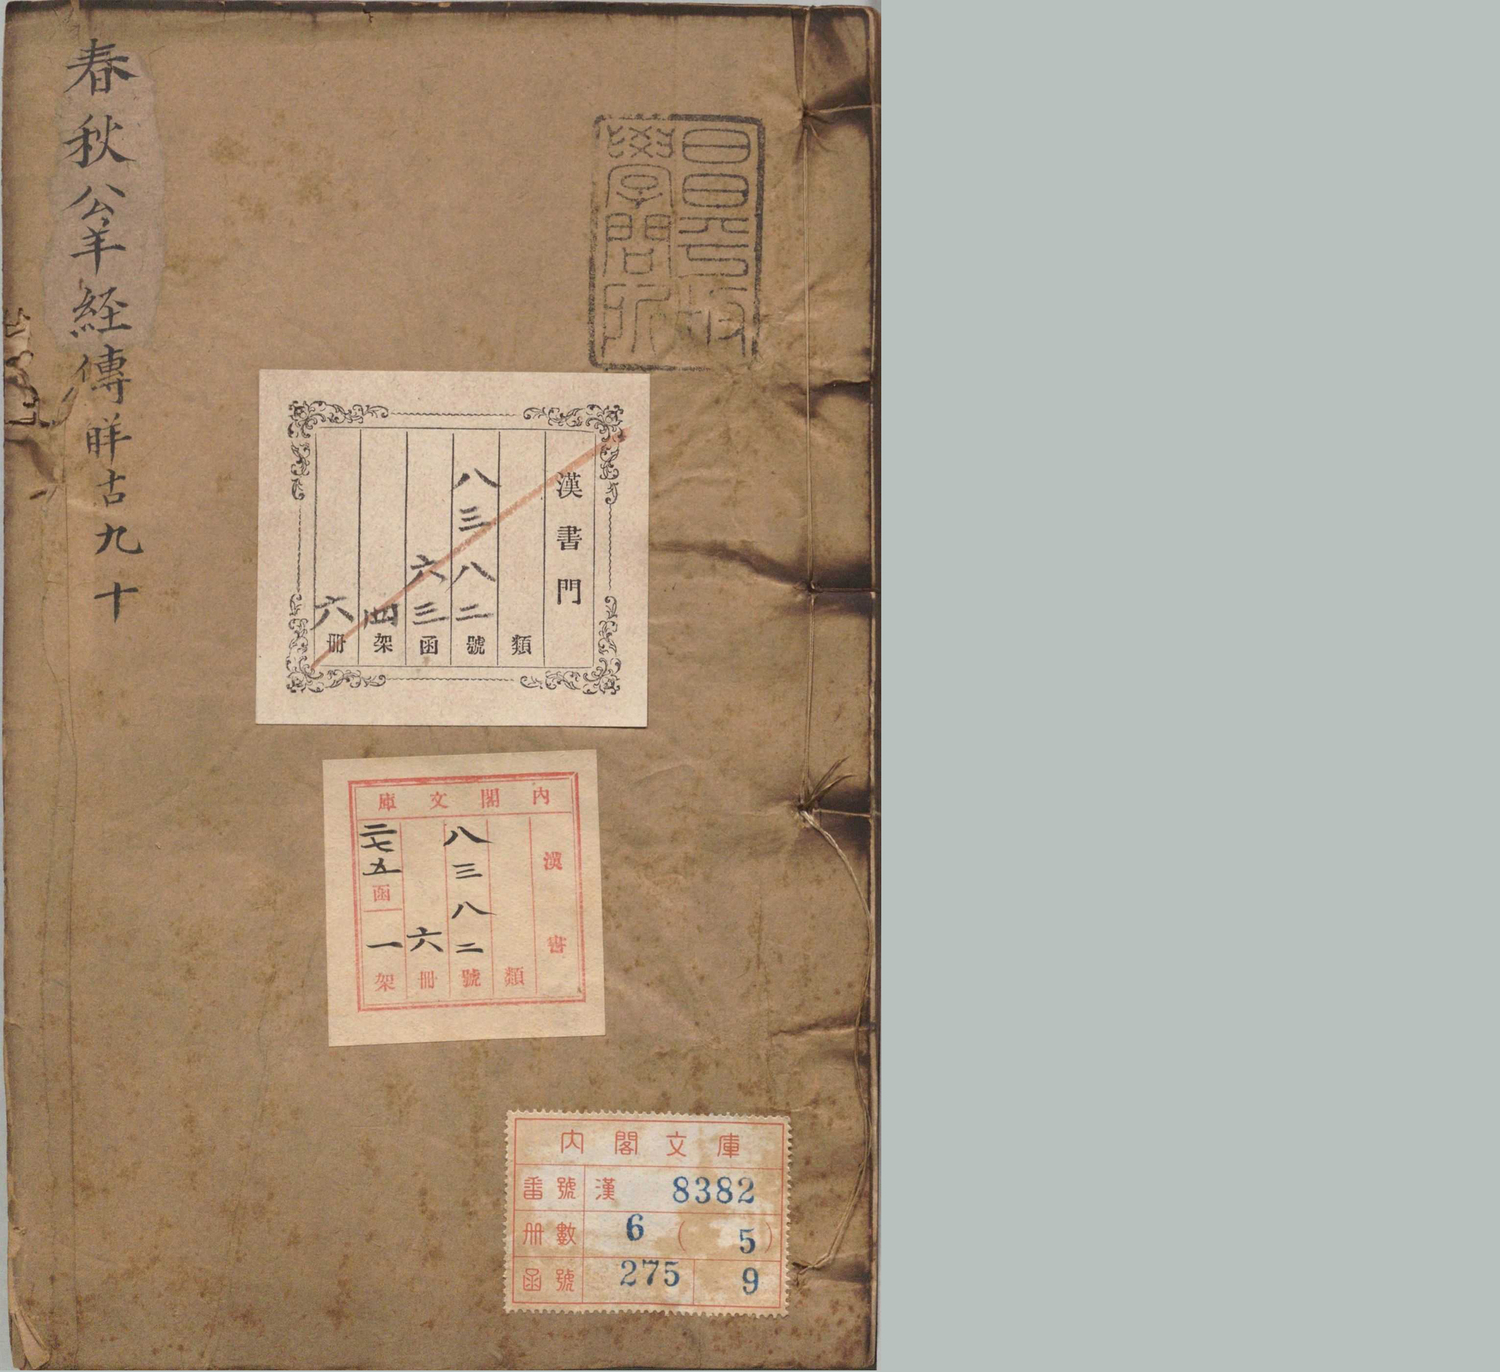 昌平坂
學問所
春秋公羊經傳觧古九十
漢書門
類
八三八二號
六三函
四架
六冊
內閣文庫
漢書
類
八三八二號
六冊
二七五函
一架
內閣文庫
番號 漢 8382
冊數 6 ( 5 )
函號 275 9